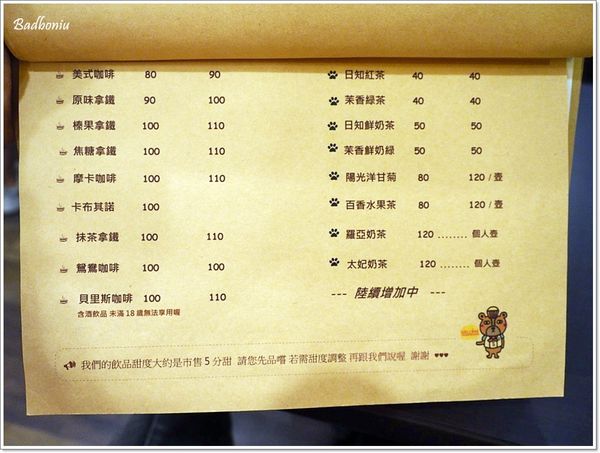 Badboniu
美式咖啡 80 90
原味拿鐵 90 100
榛果拿鐵 100 110
焦糖拿鐵 100 110
摩卡咖啡 100 110
卡布其諾 100
抹茶拿鐵 100 110
鴛鴦咖啡 100 100
貝里斯咖啡 100 110
含酒飲品 未滿 18 歲無法享用喔
日知紅茶 40 40
茉香綠茶 40 40
日知鮮奶茶 50 50
茉香鮮奶綠 50 50
陽光洋甘菊 80 120 / 壺
百香水果茶 80 120 / 壺
羅亞奶茶 120 ........ 個人壺
太妃奶茶 120 ........ 個人壺
--- 陸續增加中 ---
我們的飲品甜度大約是市售 5 分甜 請您先品嚐 若需甜度調整 再跟我們說喔 謝謝 ♥♥♥